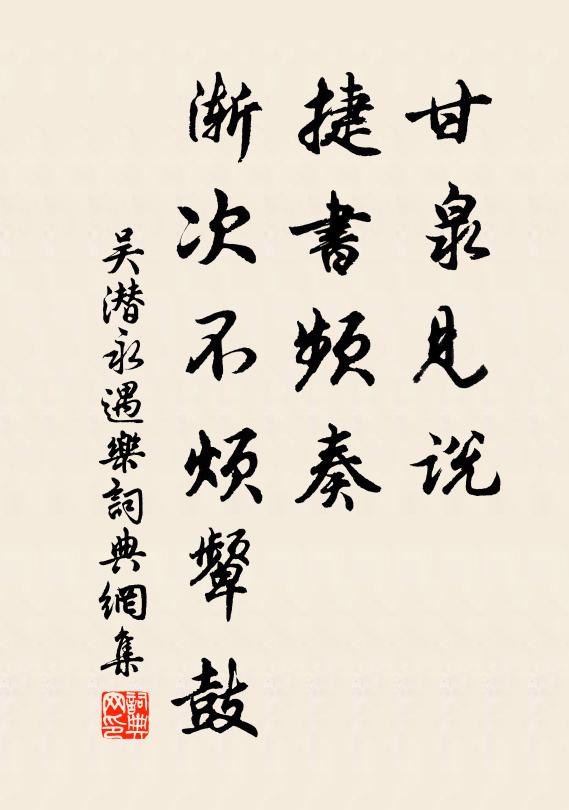 甘泉見説
捷書頻奏
漸次不煩顰鼓
吴潜永遇樂詞典網集
詞典网印